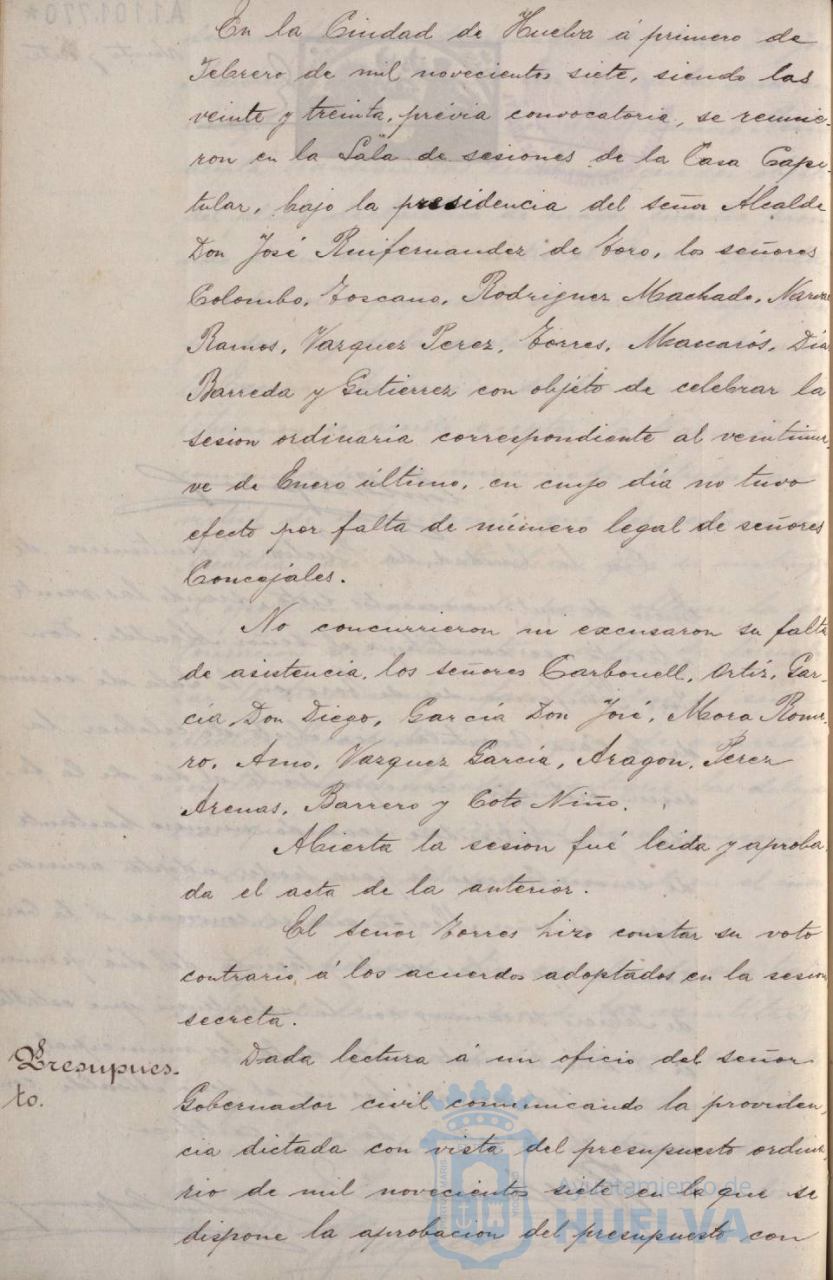 En la Ciudad de Huelva á primero de
Febrero de mil novecientos siete, siendo las
veinte y treinta, prévia convocatoria, se reunie-
ron en la Sala de sesiones de la Casa Capi-
tular, bajo la presidencia del señor Alcalde
Don José Ruifernandez de Toro, los señores
Colombo, Toscano, Rodriguez Machado, Narvaez
Ramos, Vazquez Perez, Torres, Mascarós, Díaz
Barreda y Gutierrez con objeto de celebrar la
sesion ordinaria correspondiente al veintinue-
ve de Enero último, en cuyo día no tuvo
efecto por falta de número legal de señores
Concejales.
No concurrieron ni excusaron su falta
de asistencia, los señores Carbonell, Ortíz, Gar-
cía Don Diego, García Don José, Mora Rome-
ro, Amo, Vazquez García, Aragon, Perez
Arenas, Barrero y Coto Niño.
Abierta la sesion fué leida y aproba-
da el acta de la anterior.
El señor Torres hizo constar su voto
contrario á los acuerdos adoptados en la sesion
secreta.
Presupues-
to.
Dada lectura á un oficio del señor
Gobernador civil comunicando la providen-
cia dictada con vista del presupuesto ordina-
rio de mil novecientos siete en la que se
dispone la aprobacion del presupuesto con
Ayuntamiento de
HUELVA